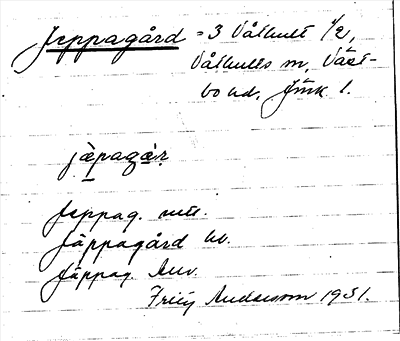 Jeppagård = 3 Våthult 1/2,
Våthults m, Väst-
bo hd, Jönk l.
jä̀pagär
Jeppag. mtr.
Jäppagård hv.
Jäppag. Auv.
Frey Andersson 1931.